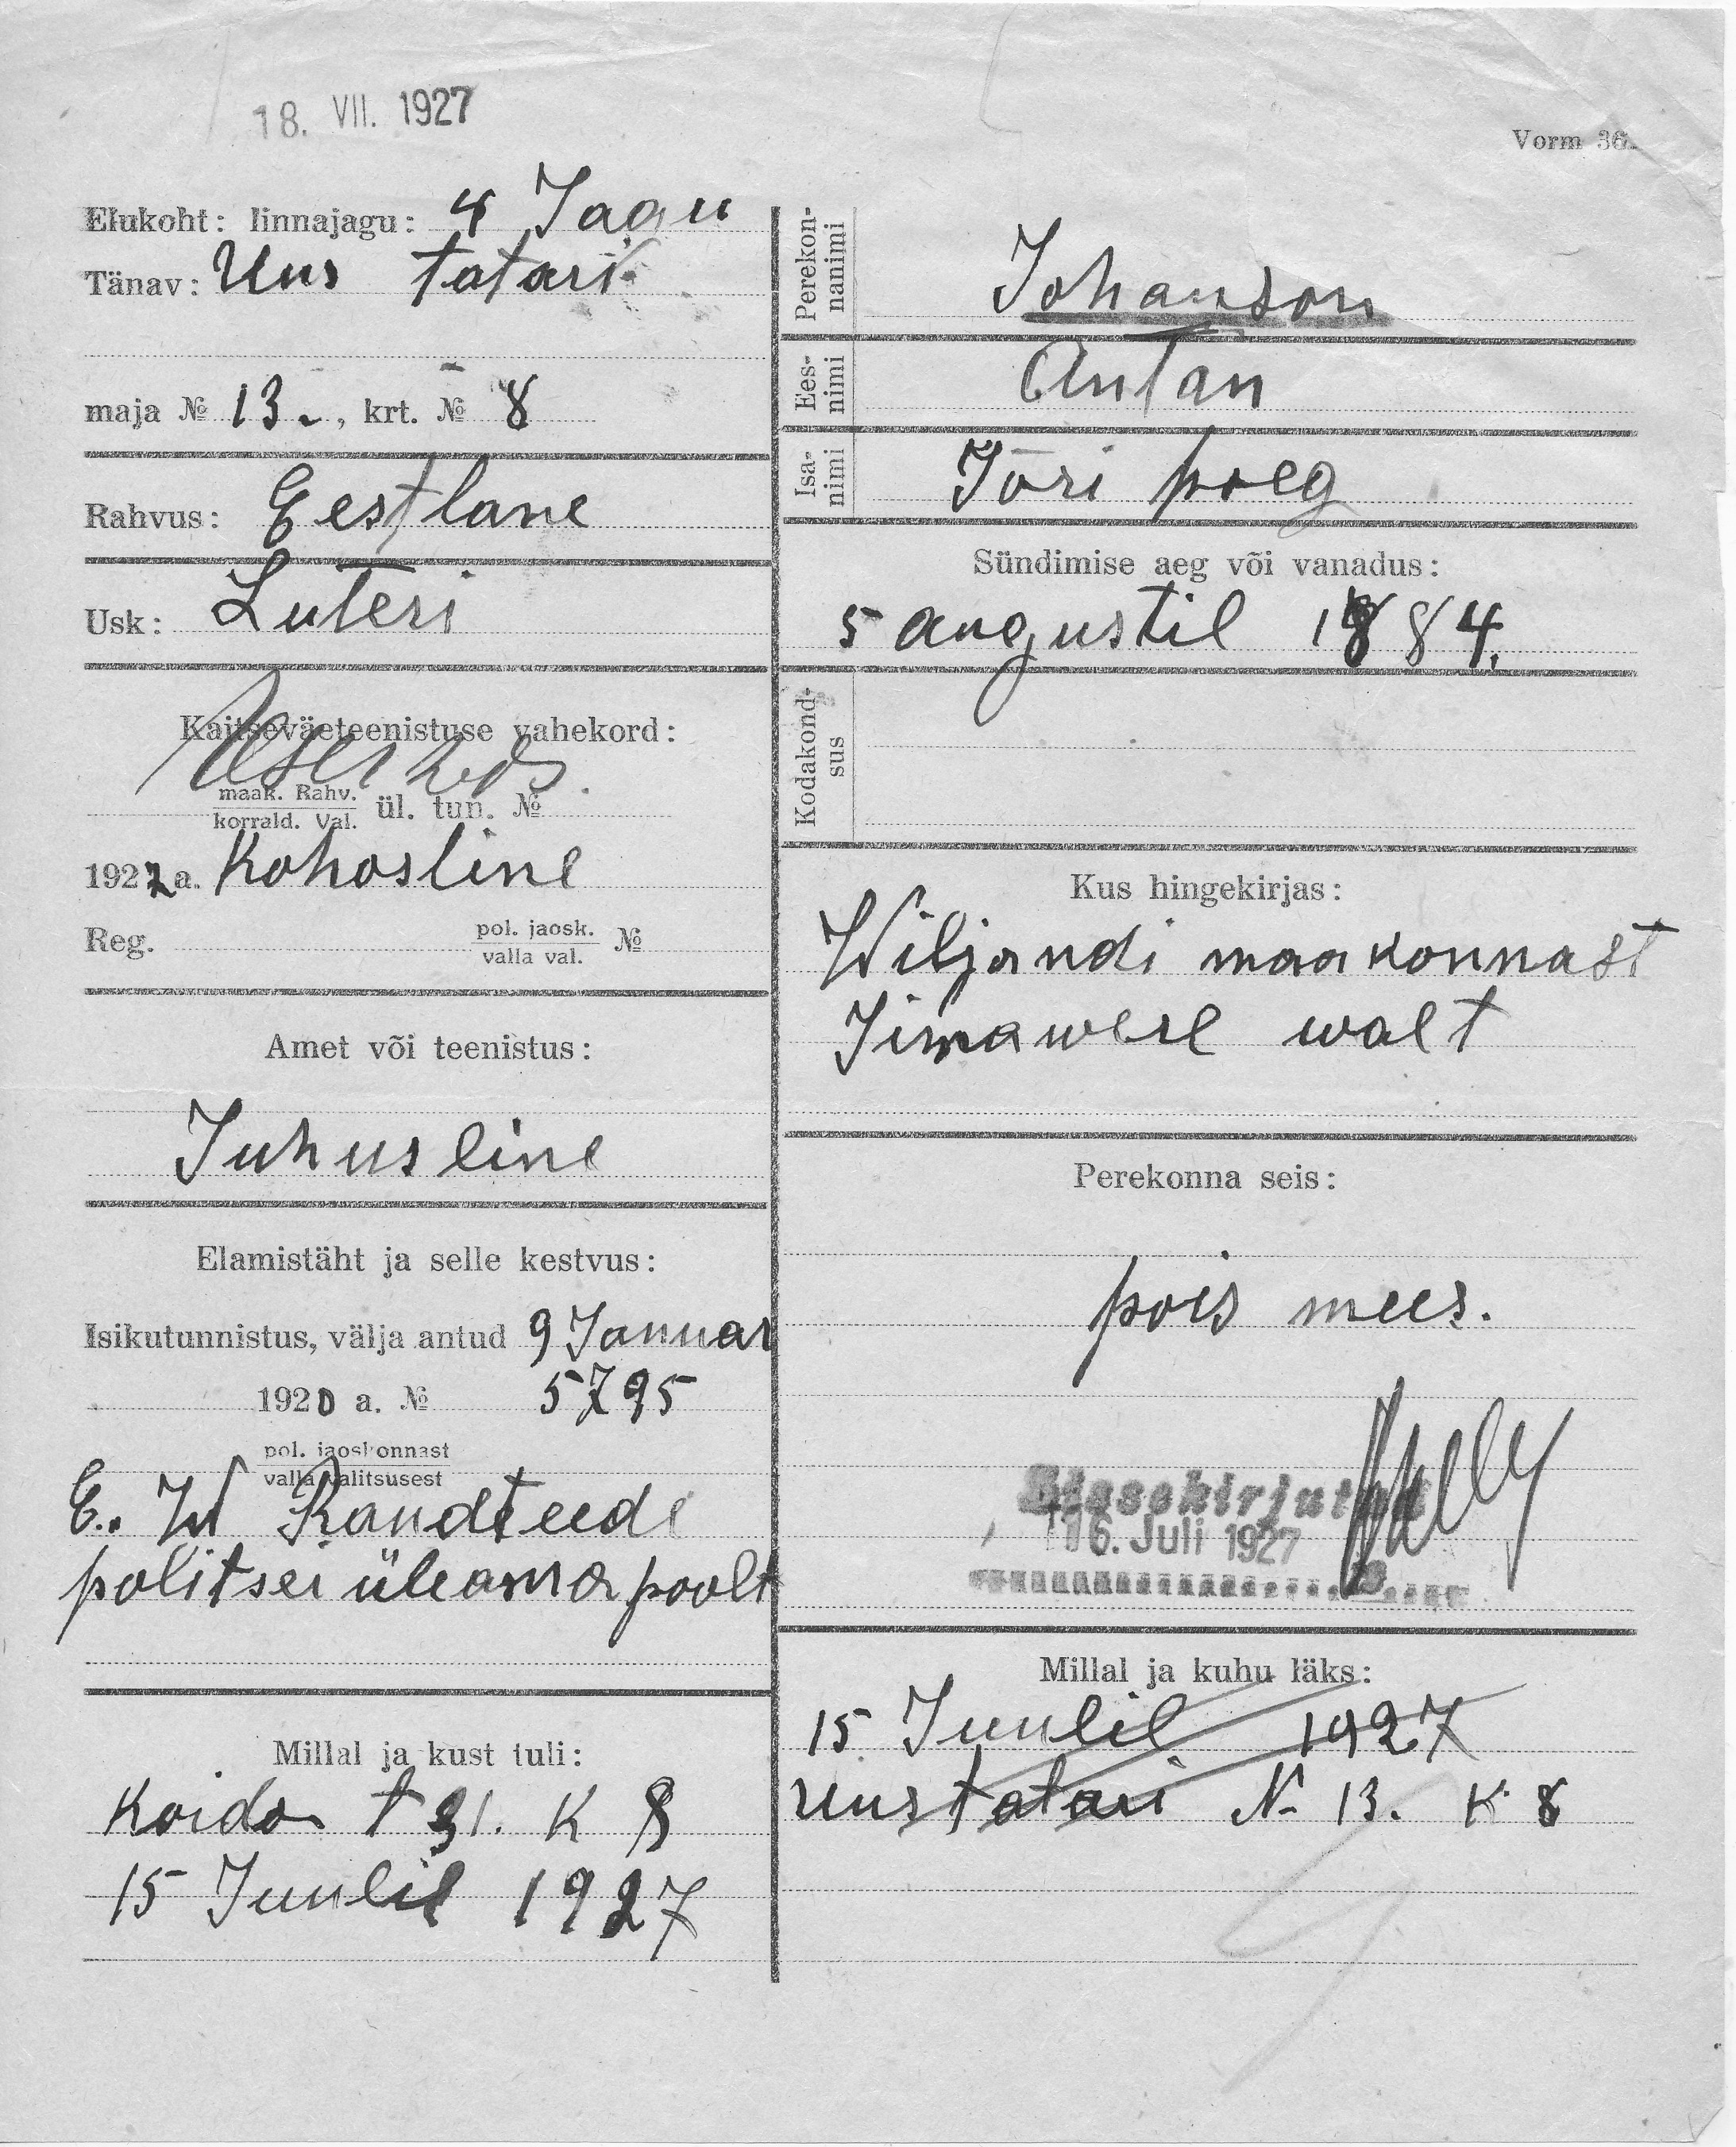 18. VII. 1927
Vorm 36.
Elukoht: linnajagu: 4 Jagu
Tänav: Uus tatari
maja № 13., krt. № 8
Rahvus: Eestlane
Usk: Luteri
Kaitseväeteenistuse vahekord:
maak. Rahv.
korrald. Val. ül. tun. №
1922 a. Kohosline
Reg. pol. jaosk. №
valla val.
Amet või teenistus:
Juhusline
Elamistäht ja selle kestvus:
Isikutunnistus, välja antud 9 Januar
1920 a. № 5795
pol. jaoskonnast
valla valitsusest
E. W Randteede
politsei üleama poolt
Millal ja kust tuli:
Koido t 31. K 8
15 Juulil 1927
Perekon-
nanimi
Johanson
Ees-
nimi
Antan
Isa-
nimi
Jõri poeg
Sündimise aeg või vanadus:
5 augustil 1884.
Kodakond-
sus
Kus hingekirjas:
Wiljandi maakonnast
Jimawere walt
Perekonna seis:
pois mees.
Sissekirjutud
16. Juli 1927
Millal ja kuhu läks:
15 Juulil 1927
Uus tatari N- 13. K 8